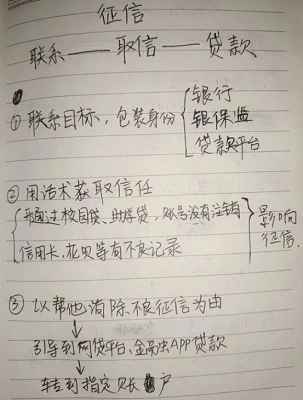 征信
联系 — 取信 — 贷款
① 联系目标、包装身份 { 银行
银保监
贷款平台
② 用话术获取信任
开通过校园贷、助学贷、账号没有注销
信用卡、花呗等有不良记录 } 影响征信
③ 以帮他消除不良征信为由
↓
引导到网贷平台、金融APP贷款
↓
转到指定账户